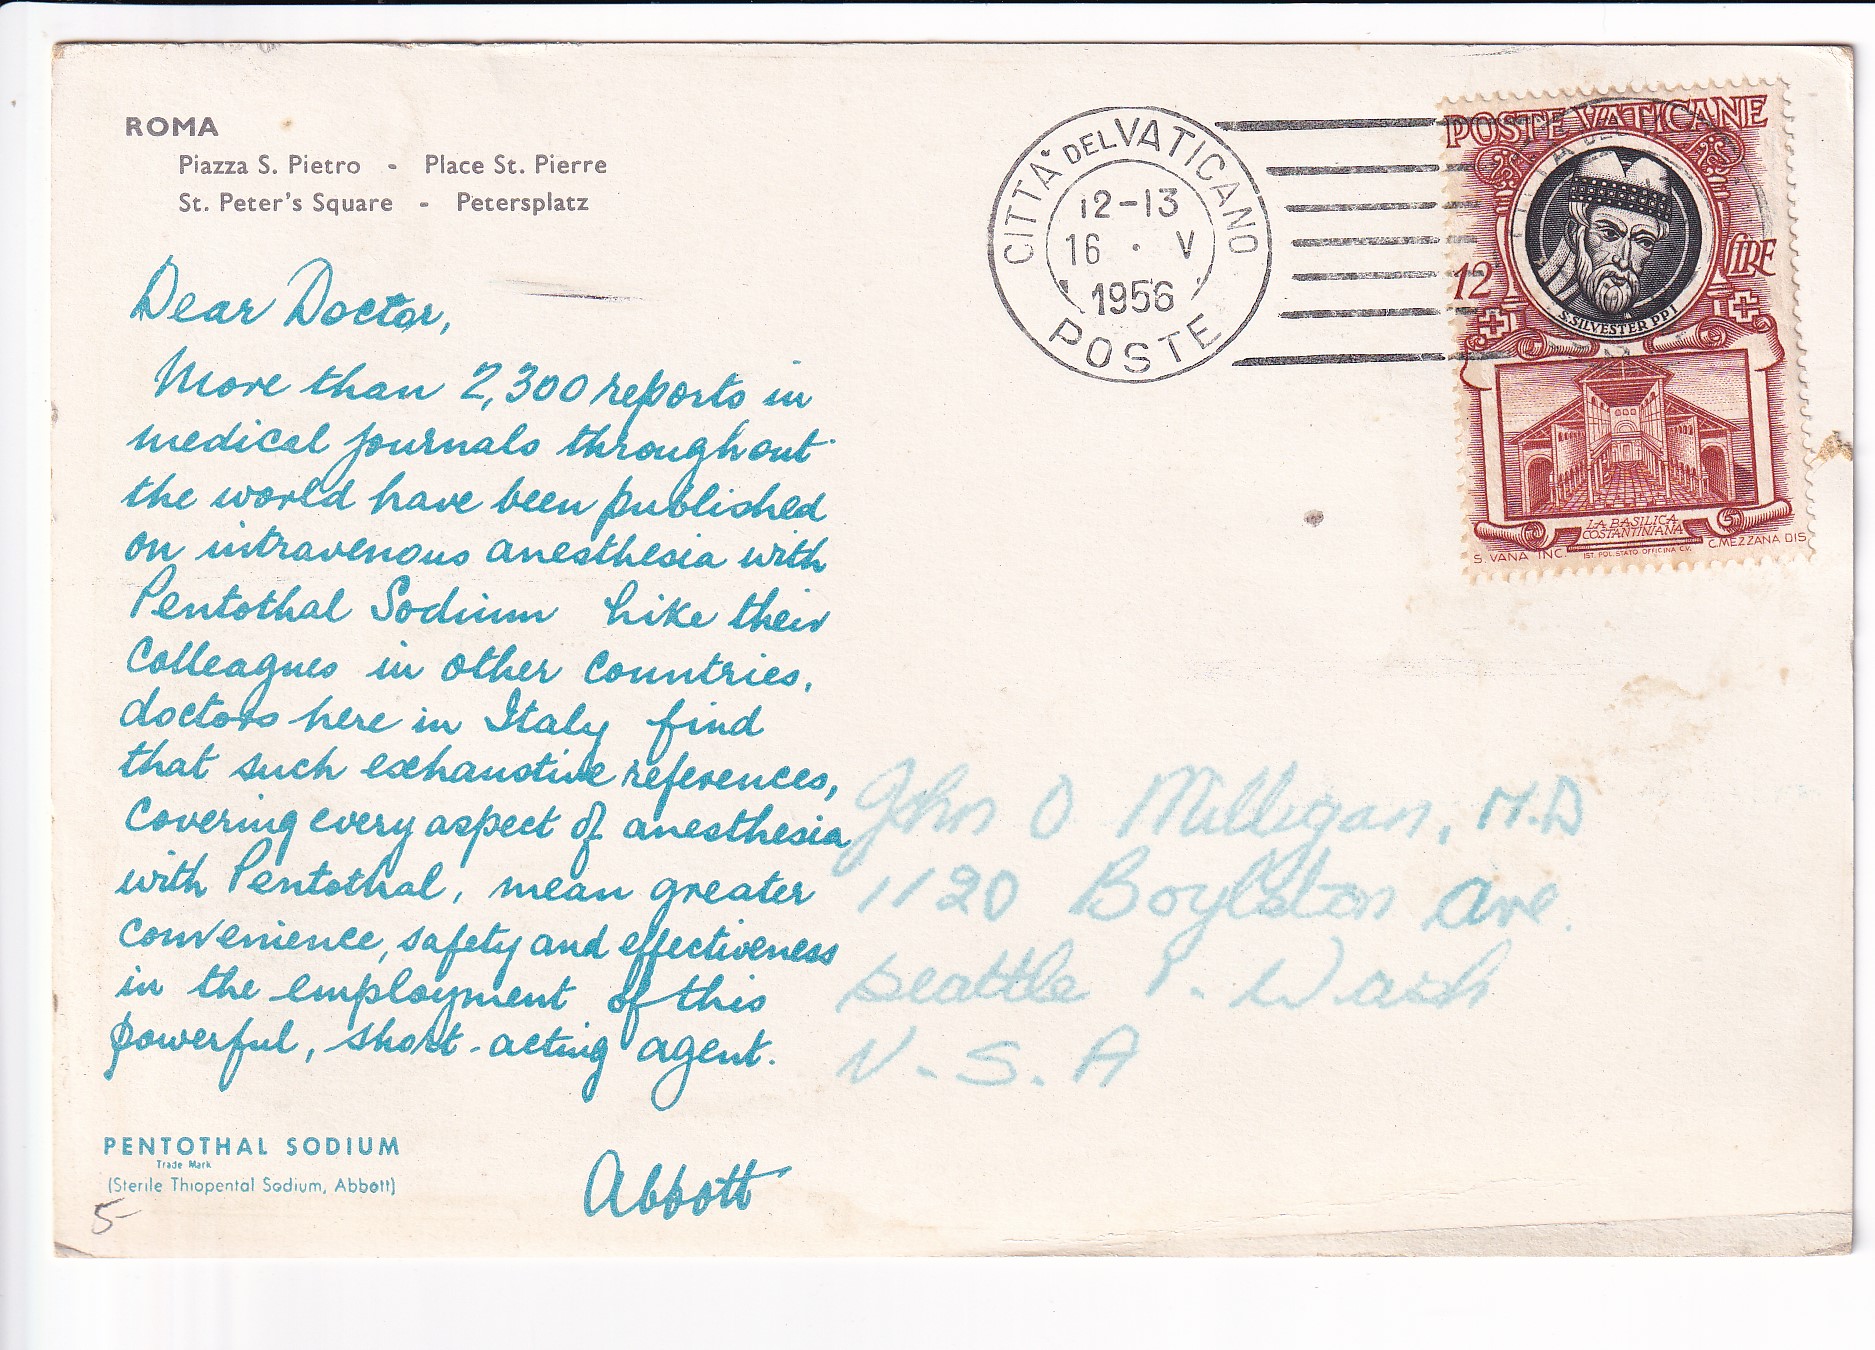 ROMA
Piazza S. Pietro - Place St. Pierre
St. Peter's Square - Petersplatz
Dear Doctor,
More than 2,300 reports in
medical journals throughout
the world have been published
on intravenous anesthesia with
Pentothal Sodium Like their
colleagues in other countries,
doctors here in Italy find
that such exhaustive references,
covering every aspect of anesthesia
with Pentothal, mean greater
convenience, safety and effectiveness
in the employment of this
powerful, short-acting agent.
Abbott
PENTOTHAL SODIUM
Trade Mark
(Sterile Thiopental Sodium, Abbott)
5-
CITTÀ DEL VATICANO
12-13
16 · V
1956
POSTE
POSTE VATICANE
12 LIRE
S. SILVESTER PP I
LA BASILICA
COSTANTINIANA
S. VANA INC. IST. POL. STATO OFFICINA C.V. C. MEZZANA DIS
John O Milligan, M.D
1120 Boylston Ave.
Seattle 1. Wash
U.S.A